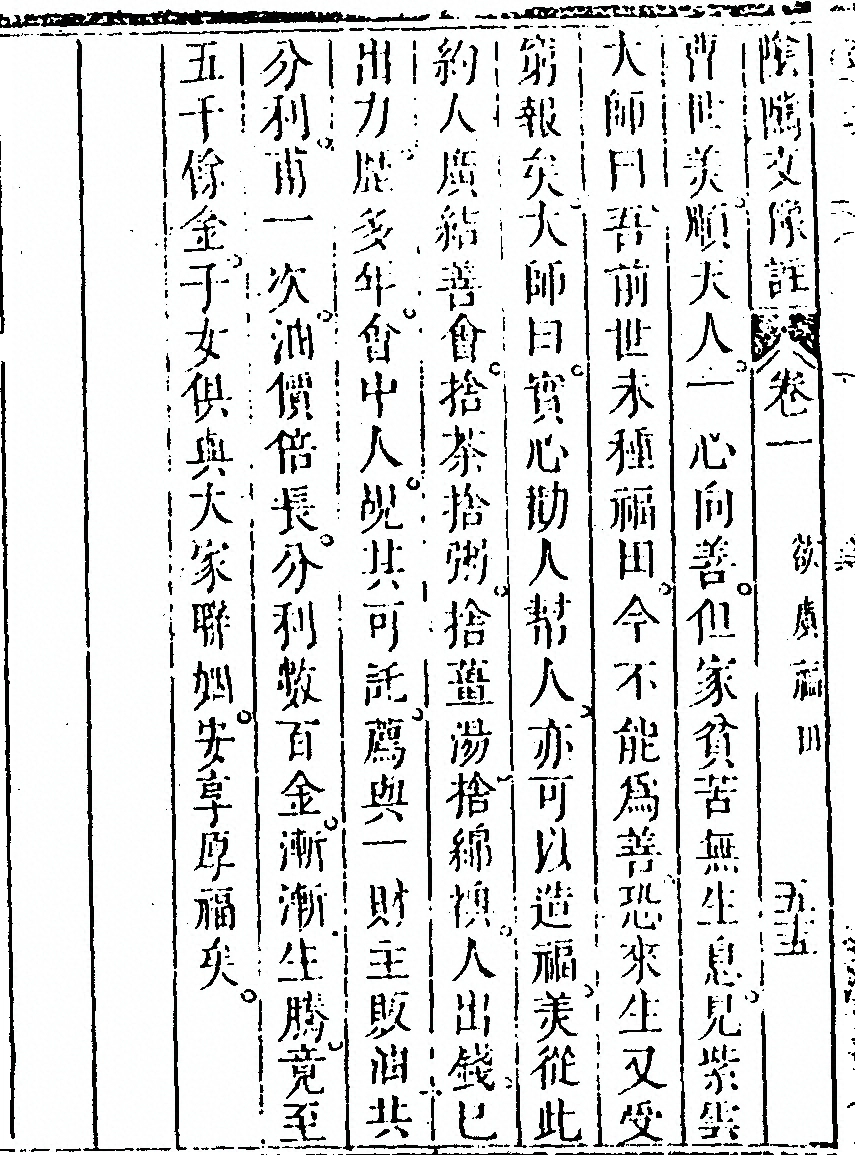 陰隲文像註 卷一 欲廣福田 五十五
曹世美順天人一心向善但家貧苦無生息見紫雲
大師曰吾前世未種福田今不能爲善恐來生又受
窮報矣大師曰實心勸人幫人亦可以造福美從此
約人廣結善會捨茶捨粥捨薑湯捨綿襖人出錢己
出力歷多年會中人說其可託薦與一財主販油共
分利甫一次油價倍長分利數百金漸漸生騰竟至
五千餘金子女俱與大家聯姻安享厚福矣